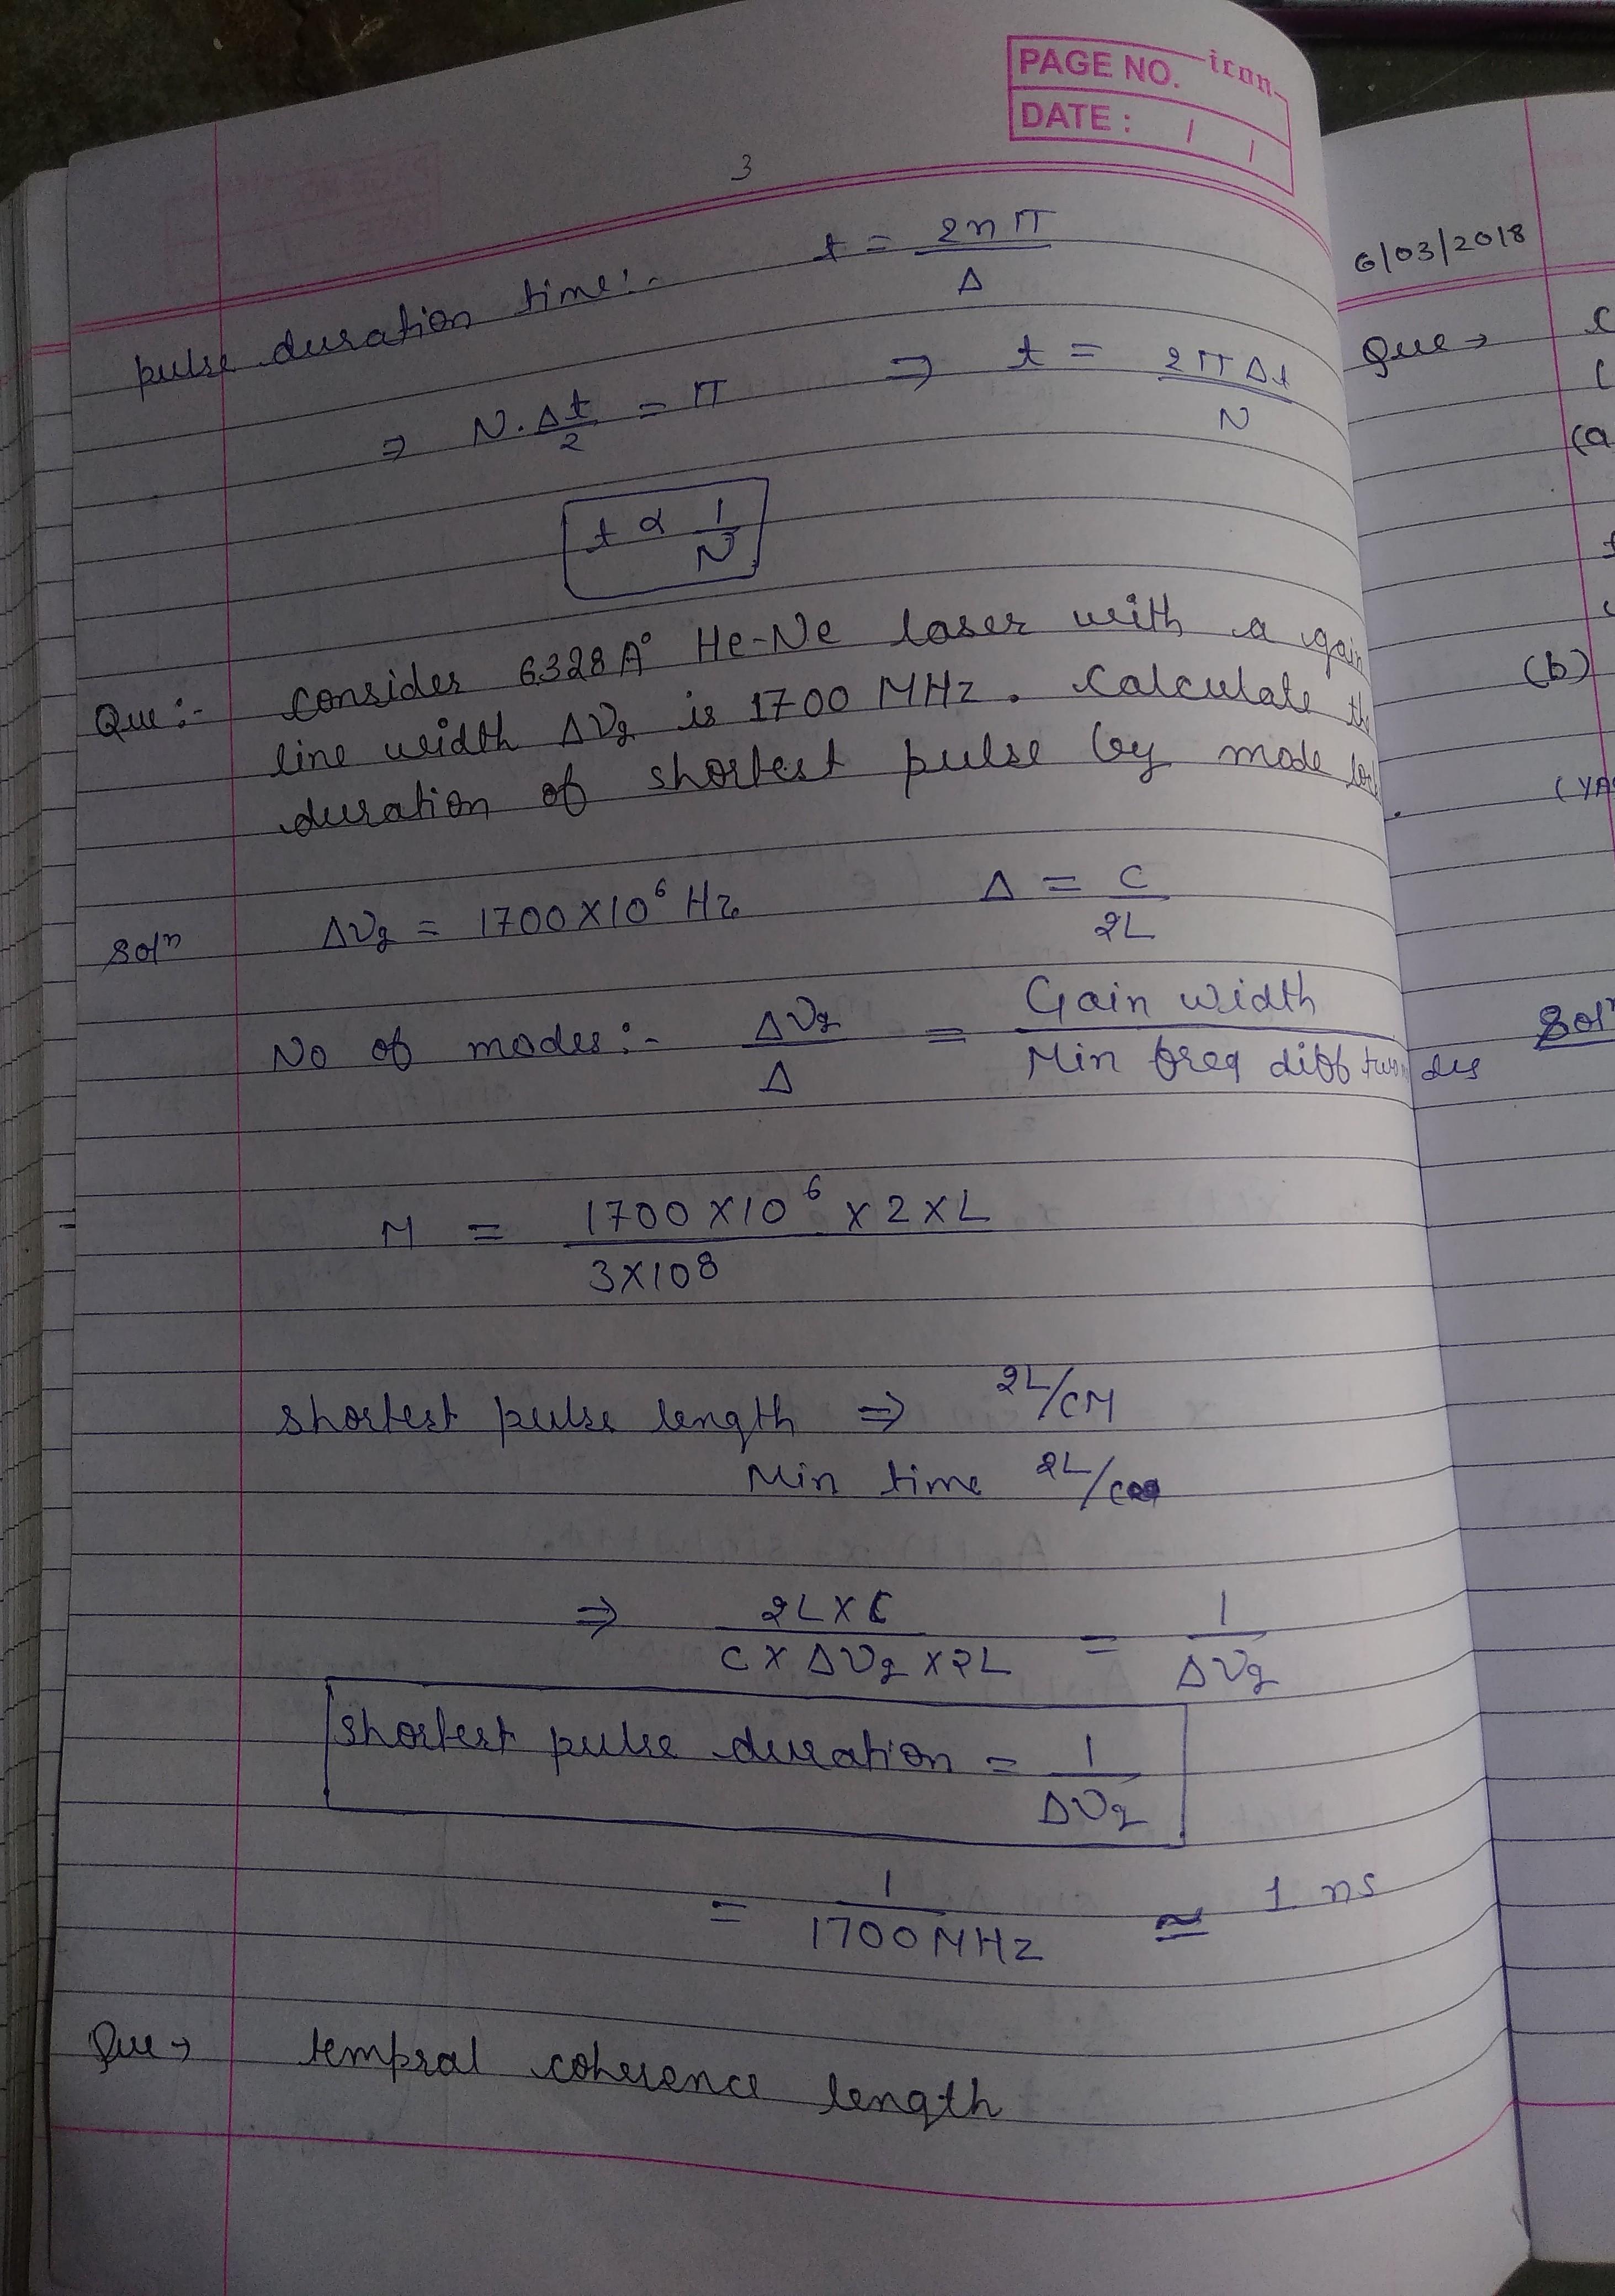 PAGE NO.
icon
DATE : / /
3
pulse duration time:- t = 2nπ / Δ
⇒ N. Δt/2 = π ⇒ t = 2πΔt / N
t α 1/N
Que:- consider 6328A° He-Ne laser with a gain
line width Δνg is 1700 MHz. Calculate the
duration of shortest pulse by mode
Solⁿ Δνg = 1700×10⁶ Hz Δ = C / 2L
No of modes:- Δνg / Δ = Gain width / Min freq diff
M = 1700×10⁶ × 2×L / 3×10⁸
shortest pulse length ⇒ 2L/CM
Min time 2L/C
⇒ 2L×C / C×Δνg×2L = 1 / Δνg
shortest pulse duration = 1 / Δνg
= 1 / 1700MHz ≅ 1 ns
Que→ tempral coherence length
6/03/2018
Que→
(a
(b)
(YA
Solⁿ